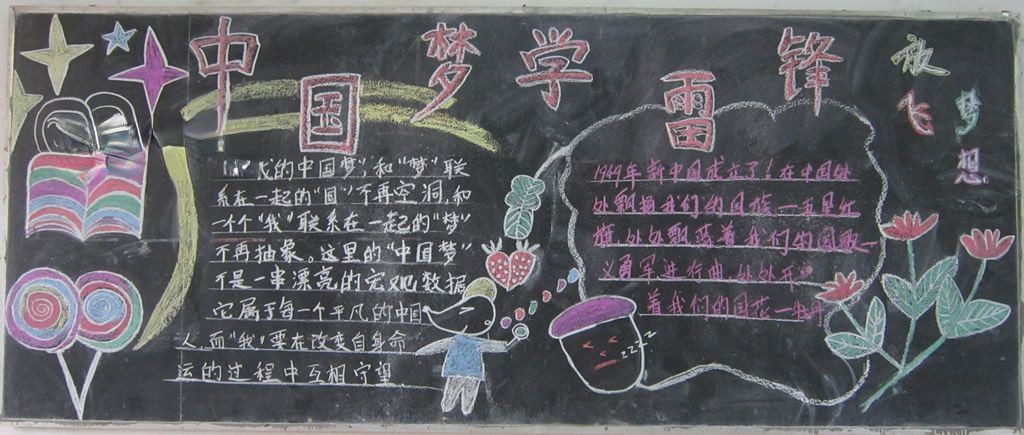 中国梦学雷锋
放飞梦想
我的中国梦,和“梦”联
系在一起的“国”不再空洞,和
一个“我”联系在一起的“梦”
不再抽象。这里的“中国梦”
不是一串漂亮的宏观数据
它属于每一个平凡的中国
人,而“我”要在改变自身命
运的过程中互相守望
1949年新中国成立了!在中国处
处飘扬我们的国旗一五星红
旗,处处飘荡着我们的国歌一
义勇军进行曲,处处开
着我们的国花一牡丹
zzzz